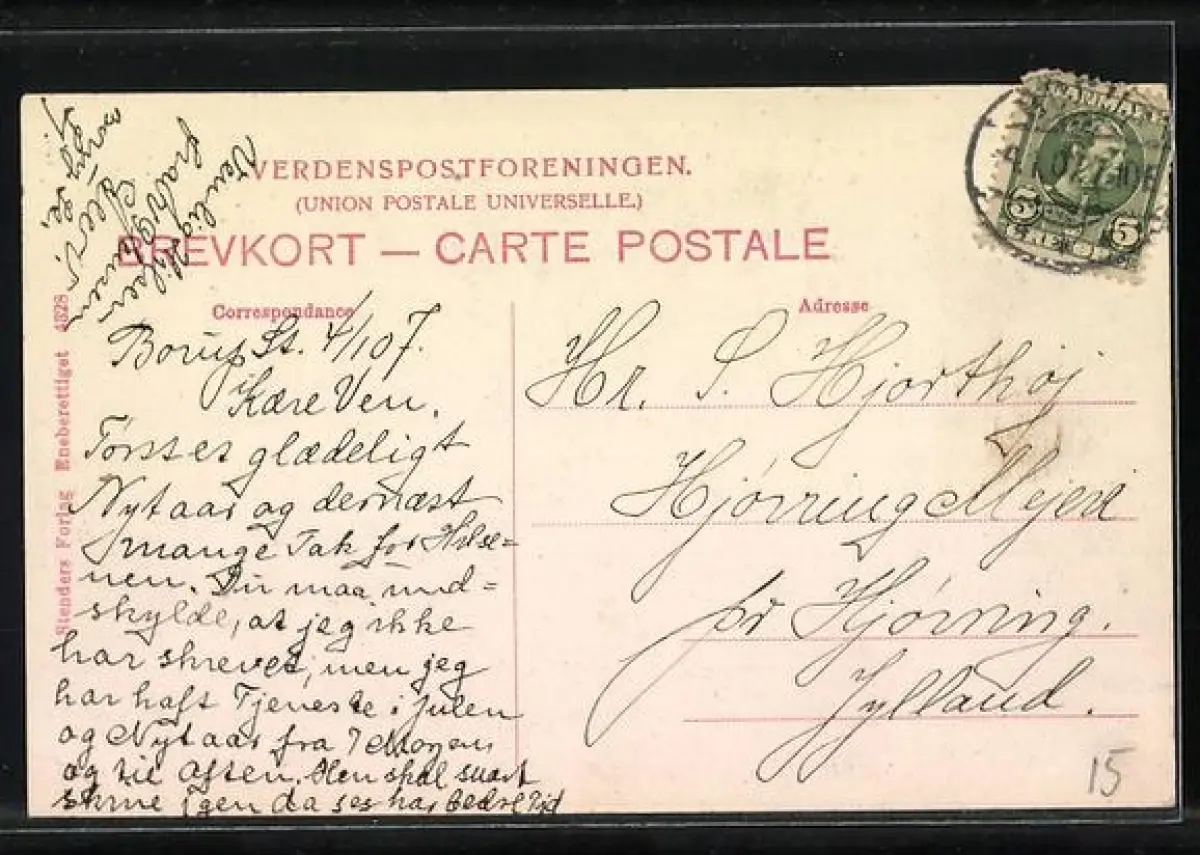 VERDENSPOSTFORENINGEN.
(UNION POSTALE UNIVERSELLE.)
BREVKORT — CARTE POSTALE
Correspondance
Adresse
Stenders Forlag Eneberettiget 4328
Venlig Hilsen
fra
Borup St. 4/1 07.
Kære Ven.
Først es glædeligt
Nytaar og dernæst
mange Tak for Hilse=
nen. Du maa und=
skylde, at jeg ikke
har skrevet, men jeg
har haft Tjeneste i Julen
og Nytaar fra 7 Morgen
og til Aften. Men skal snart
skrive igen da jeg har bedre Tid
Hr. S. Hjorthøj
Hjørring Mejeri
pr Hjørring.
Jylland.
5 5
15